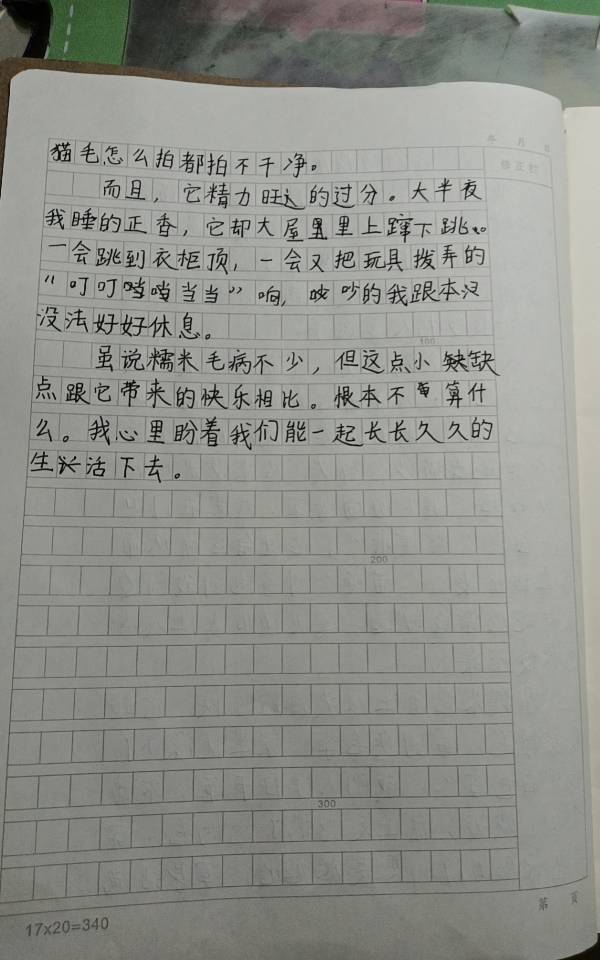 年 月 日
猫毛怎么拍都拍不干净。
而且，它精力旺的过分。大半夜
我睡的正香，它却大屋里上蹿下跳。
一会跳到衣柜顶，一会又把玩具拨弄的
“叮叮当当当”响，吵的我跟本没
没法好好休息。
100
虽说糯米毛病不少，但这点小缺
点跟它带来的快乐相比。根本不算什
么。我心里盼着我们能一起长长久久的
生活下去。
200
300
第 页
17x20=340